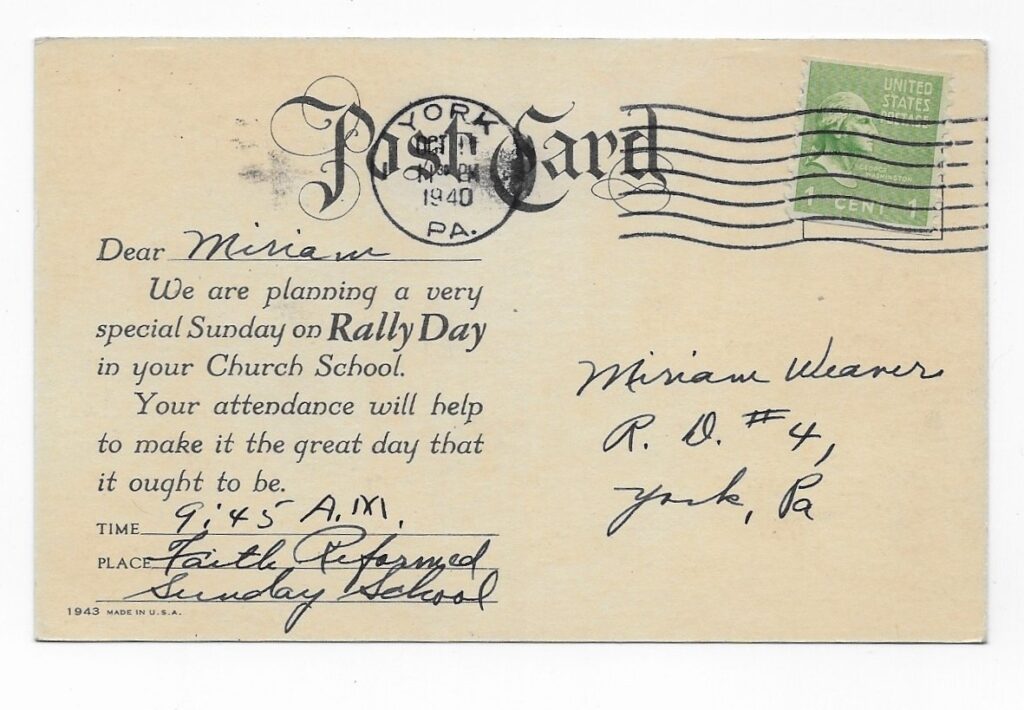 Post Card
YORK
OCT
PM
1940
PA.
UNITED
STATES
POSTAGE
GEORGE
WASHINGTON
1 CENT 1
Dear Miriam
We are planning a very
special Sunday on Rally Day
in your Church School.
Your attendance will help
to make it the great day that
it ought to be.
TIME 9:45 A.M.
PLACE Faith Reformed
Sunday School
1943 MADE IN U.S.A.
Miriam Weaver
R. D. #4,
York, Pa